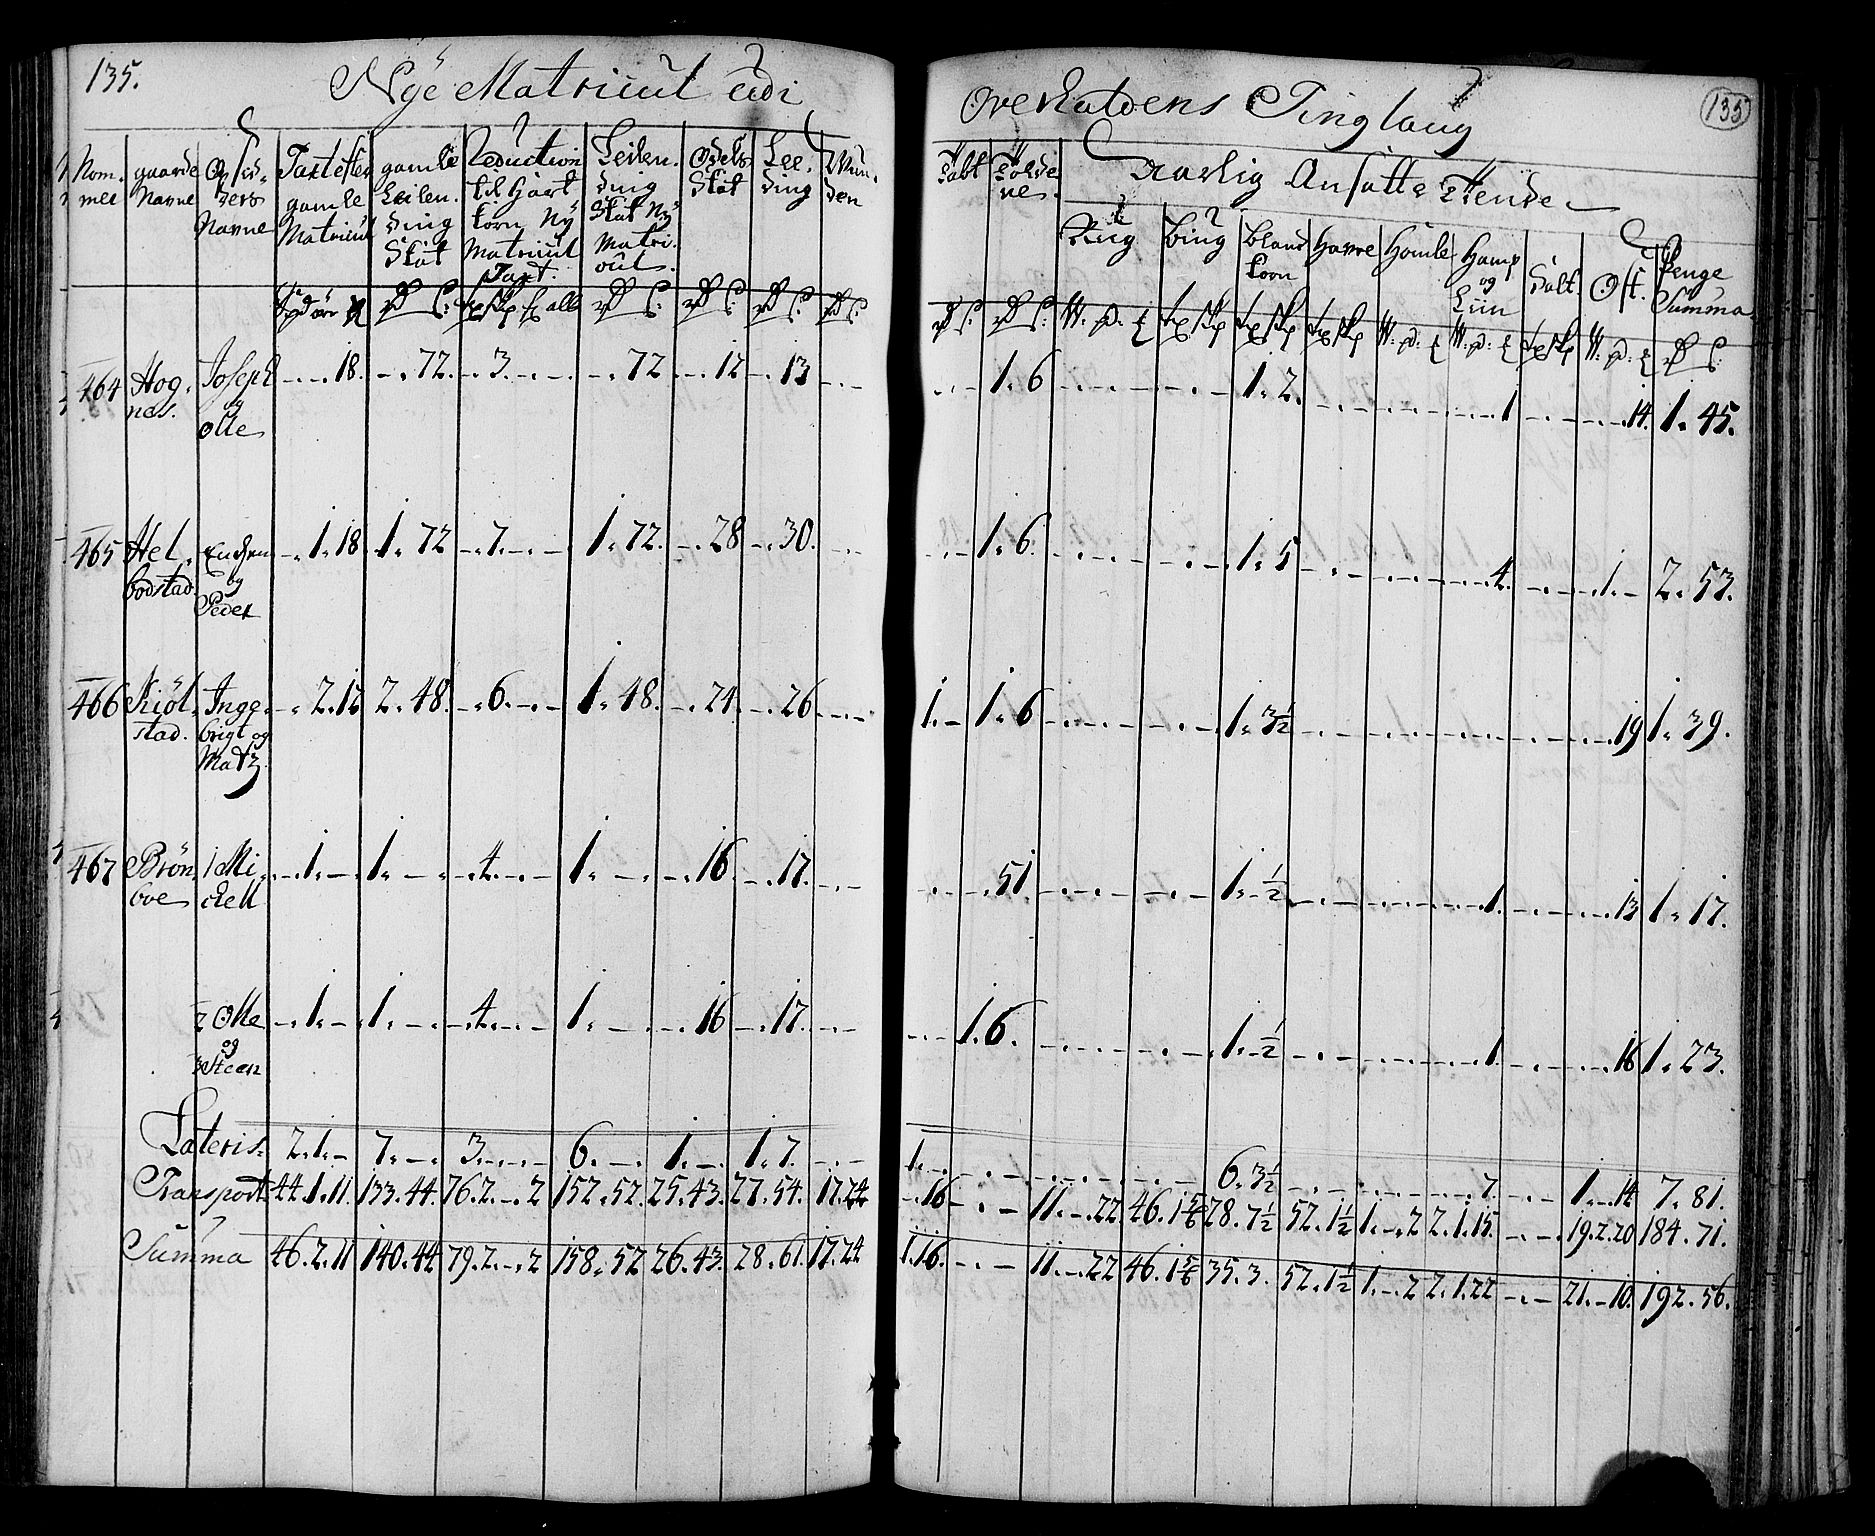 135. Nye Matricul udi Overhaldens Tinglaug 135
Nom. mer | gaarde Navne | Opsid- ders Navne | Taxt efter gamle Matricul | gamle Leilen- ding Skat | Reduction til Hart korn Ny Matricul Taxt | Leilen- ding Skat Ny Matri- cul | Odels Skat | Lee- ding
Toldene | Aarlig Ansatte Tiende
Rug | Biug | bland korn | Havre | Homle | Hamp og Liin | Salt | Ost. | Penge Summa
464 Hog- nes. Joseph og Olle 18. 72. 3. 72 12 13 1. 6 1. 2. 1 14. 1. 45.
465 Hel- bodstad. og Peder 1. 18. 1. 72 7. 1. 72. 28 30. 1. 6. 1. 5 4. 1. 2. 53.
466 Kiöl- stad. Inge- brigt og Matz. 2. 12 2. 48. 6. 1. 48. 24. 26 1. 1. 6 1. 3½ 19 1. 39.
467 Brön- boe 1 Mi- chell 1. 1. 4. 1. 16. 17. 51. 1. ½ 1. 13 1. 17.
2 Olle og 3 Steen 1. 1. 4. 1. 16 17. 1. 6. 1. ½ 1. 16 1. 23.
Lateris. 2. 1. 7. 3. 6. 1. 1. 7. 1. 6. 3½ 7. 1. 14 7. 81.
Transport 44. 1. 11. 133. 44. 76. 2. 2 152. 52. 25. 43. 27. 54. 17. 24 16 11. 22 46. 1 5/6 28. 7½ 52. 1½ 1. 2 2. 1. 15. 19. 2. 20 184. 71.
Summa 46. 2. 11 140. 44 79. 2. 2 158. 52 26. 43. 28. 61. 17. 24 1. 16. 11. 22 46. 1 5/6 35. 3. 52. 1½ 1. 2 2. 1. 22 21. 10. 192. 56.